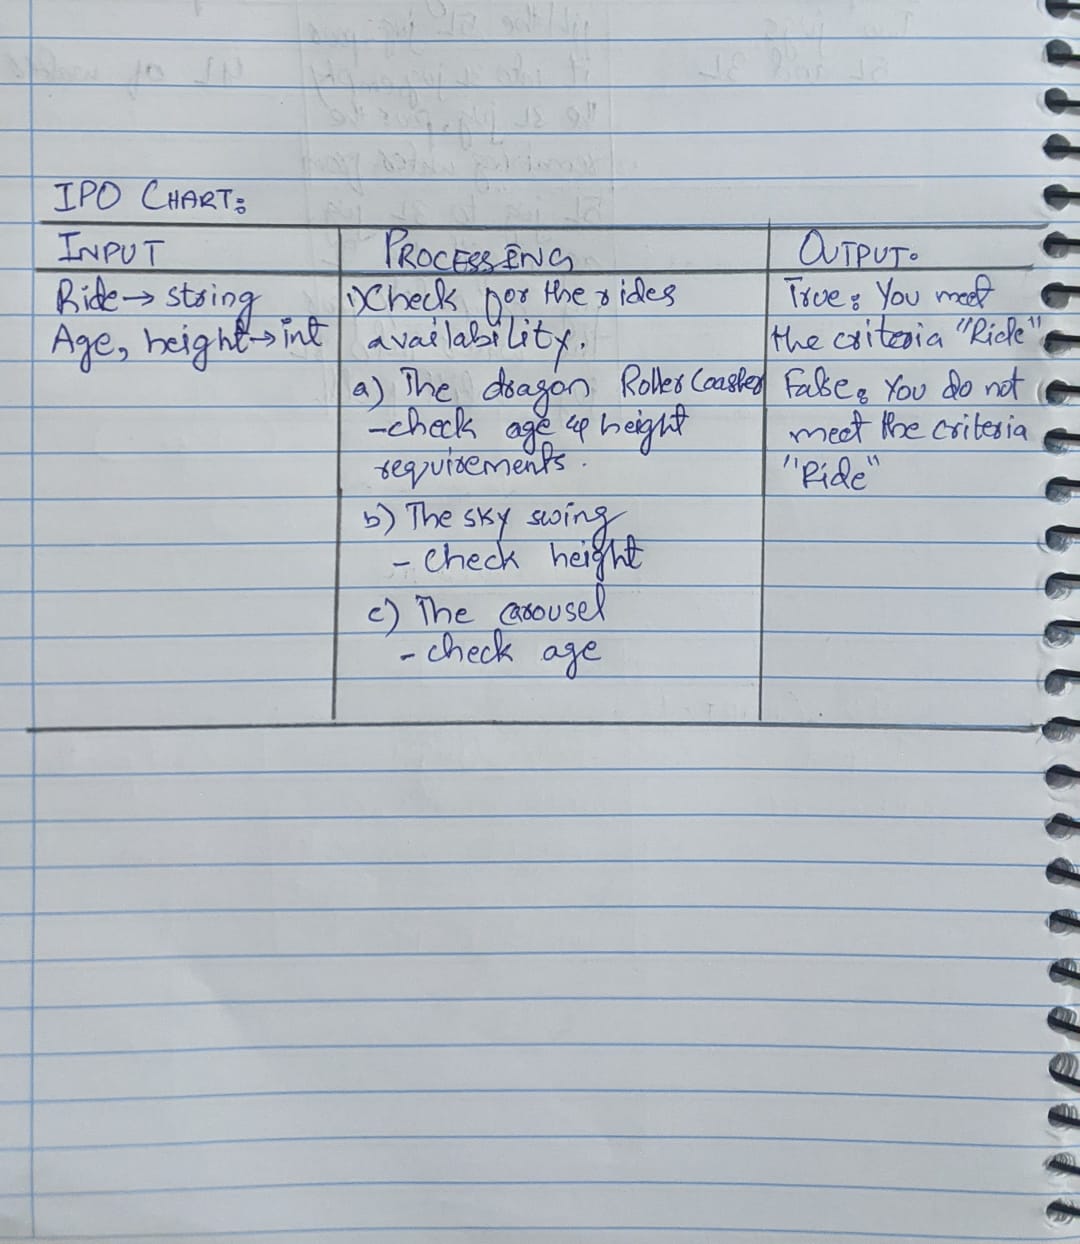 IPO CHART:
INPUT
PROCESSING
OUTPUT.
Ride → string
Age, height → int
1) Check for the rides
availability.
a) The dragon Roller Coaster
- check age & height
requirements.
b) The sky swing
- check height
c) The carousel
- check age
True: You meet
the criteria "Ride"
False: You do not
meet the criteria
"Ride"